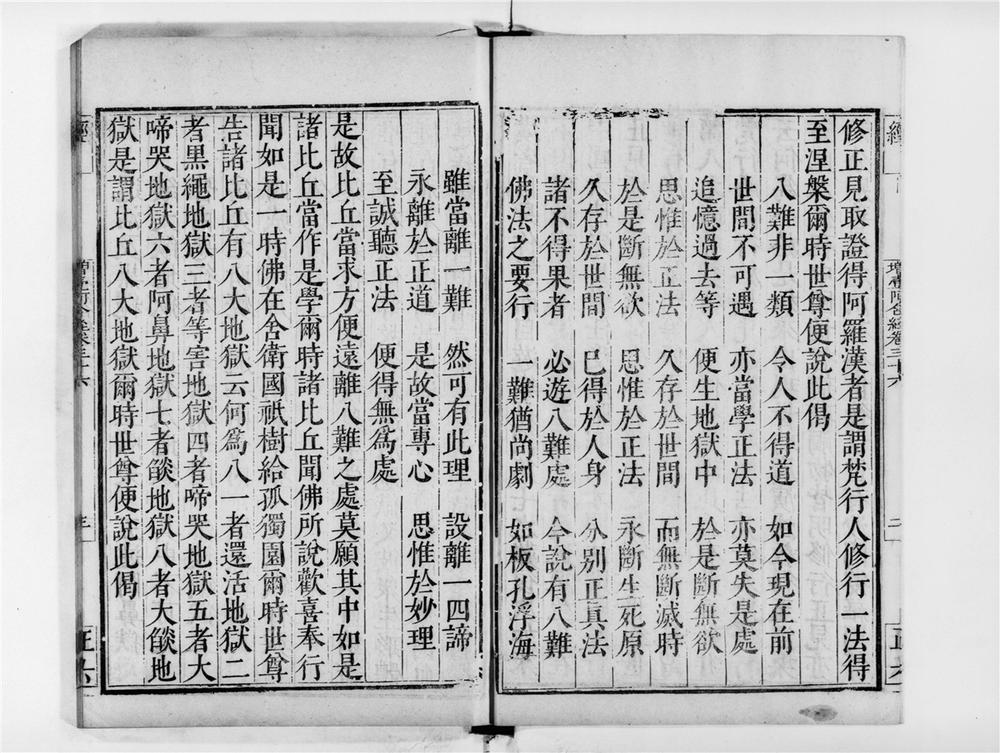 修正見取證得阿羅漢者是謂梵行人修行一法得
至涅槃爾時世尊便說此偈
八難非一類 令人不得道 如今現在前
世間不可遇 亦當學正法 亦莫失是處
追憶過去等 便生地獄中 於是斷無欲
思惟於正法 久存於世間 而無斷滅時
於是斷無欲 思惟於正法 永斷生死原
久存於世間 已得於人身 分別正真法
諸不得果者 必遊八難處 今說有八難
佛法之要行 一難猶尚劇 如板孔浮海
雖當離一難 然可有此理 設離一四諦
永離於正道 是故當專心 思惟於妙理
至誠聽正法 便得無為處
是故比丘當求方便遠離八難之處莫願其中如是
諸比丘當作是學爾時諸比丘聞佛所說歡喜奉行
聞如是一時佛在舍衛國祇樹給孤獨園爾時世尊
告諸比丘有八大地獄云何為八一者還活地獄二
者黑繩地獄三者等害地獄四者啼哭地獄五者大
啼哭地獄六者阿鼻地獄七者燄地獄八者大燄地
獄是謂比丘八大地獄爾時世尊便說此偈